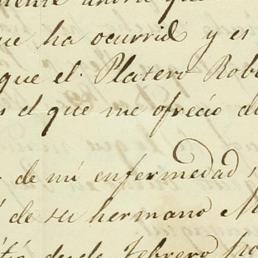 ahora que
que ha ocurrid y es
que el Platero Rob
s el que me ofrecio d
de mi enfermedad s
de su hermano M
desde Febrero